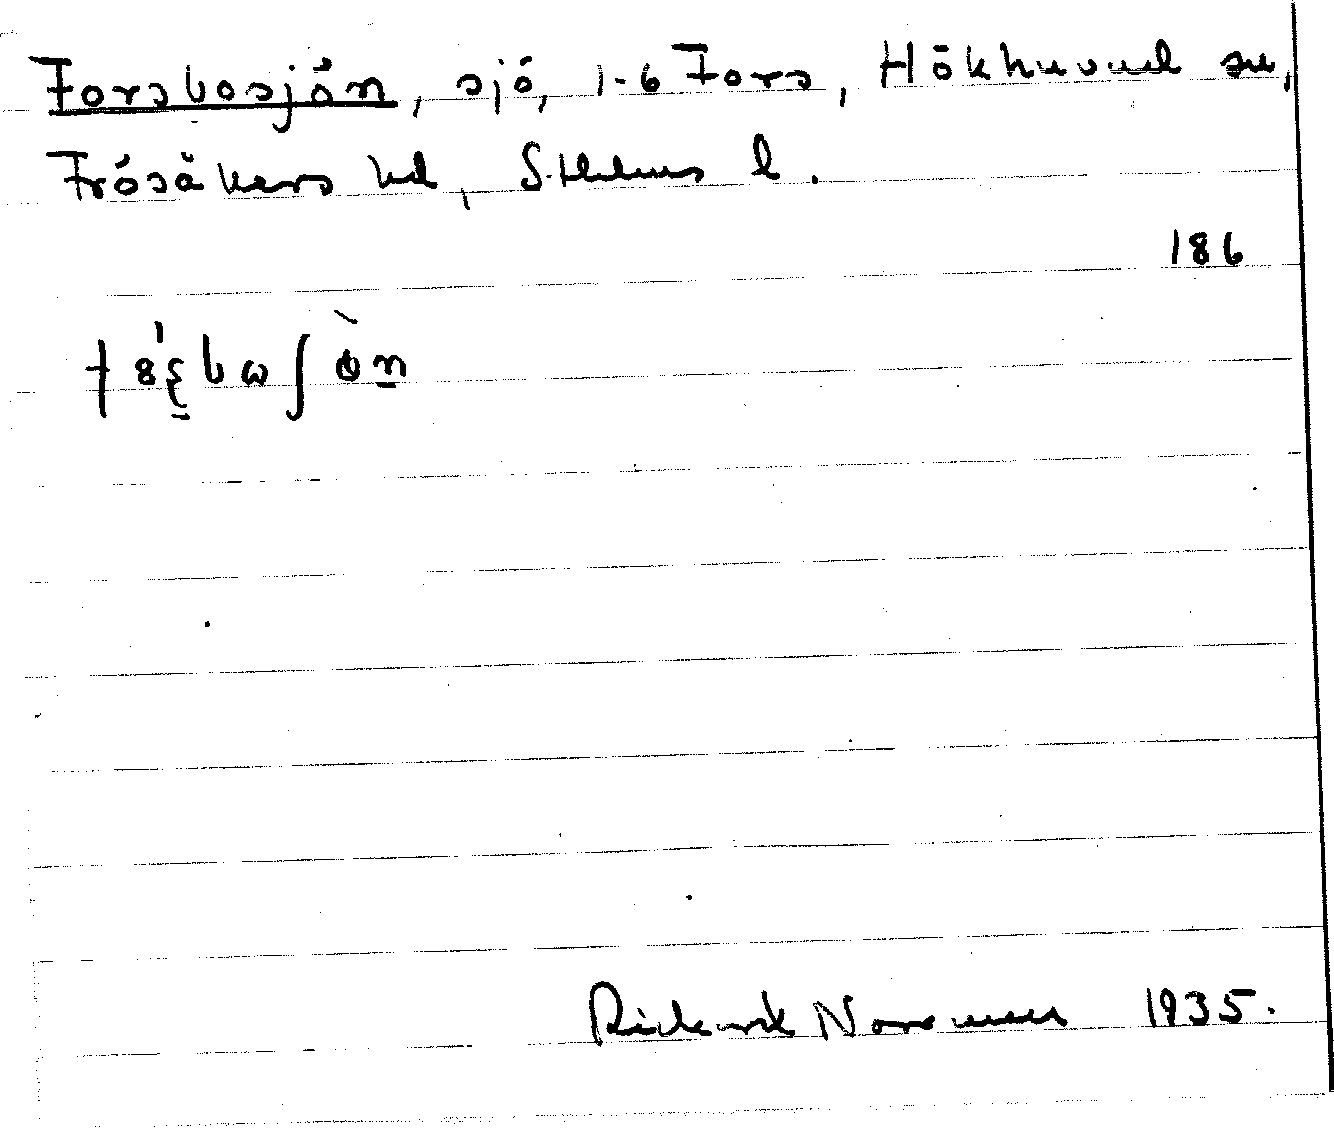 Forsbosjön, sjö, 1-6 Fors, Hökhuvud sn,
Frösåkers hd, Sthlms l.
186
Rickard Norrman 1935.